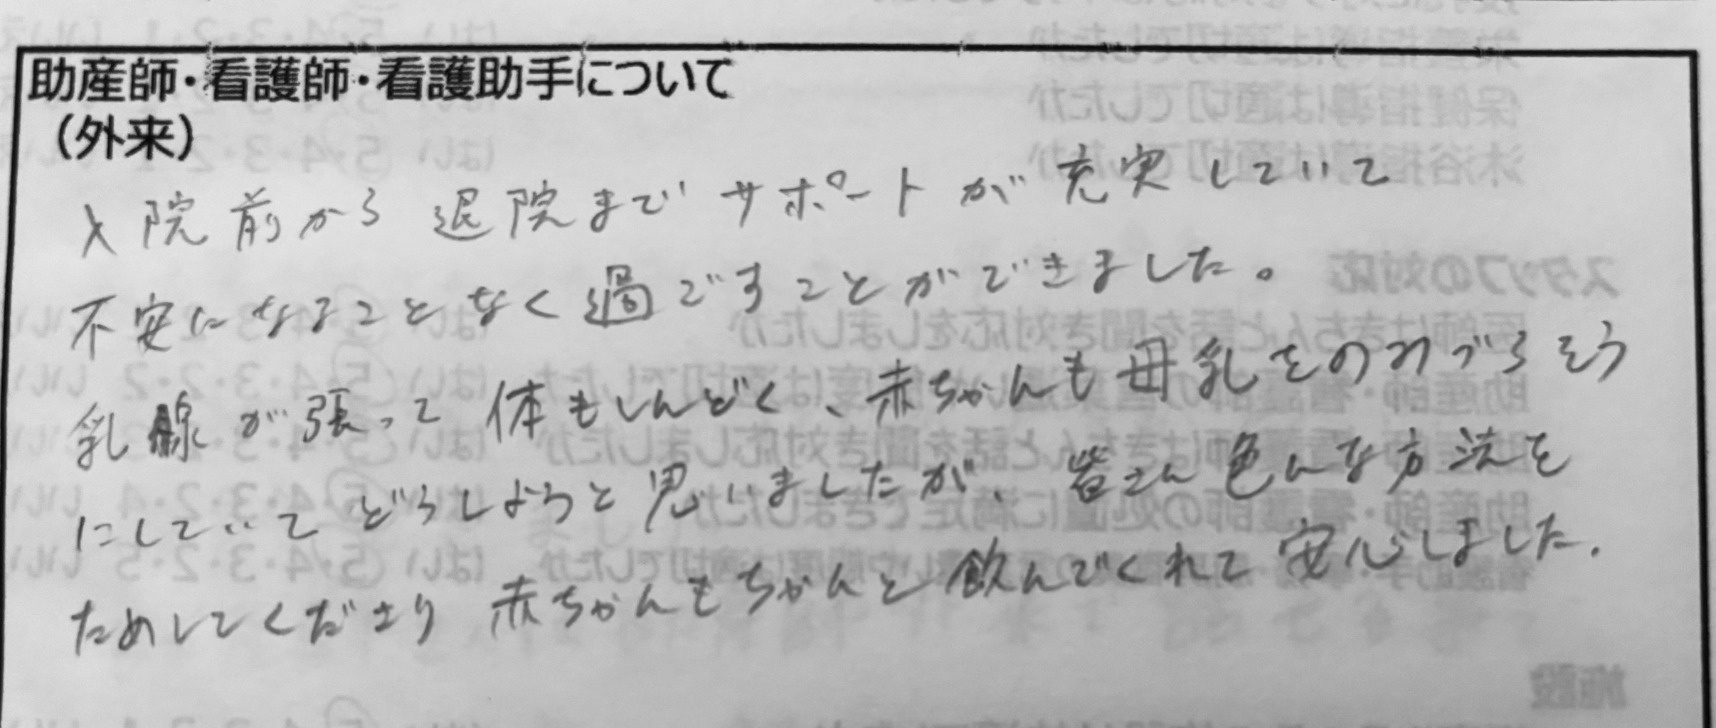 助産師・看護師・看護助手について
（外来）
入院前から退院までサポートが充実していて
不安になることなく過ごすことができました。
乳腺が張って体もしんどく、赤ちゃんも母乳をのみづらそう
にしていてどうしようと思いましたが、皆さん色んな方法を
ためしてくださり赤ちゃんもちゃんと飲んでくれて安心しました.